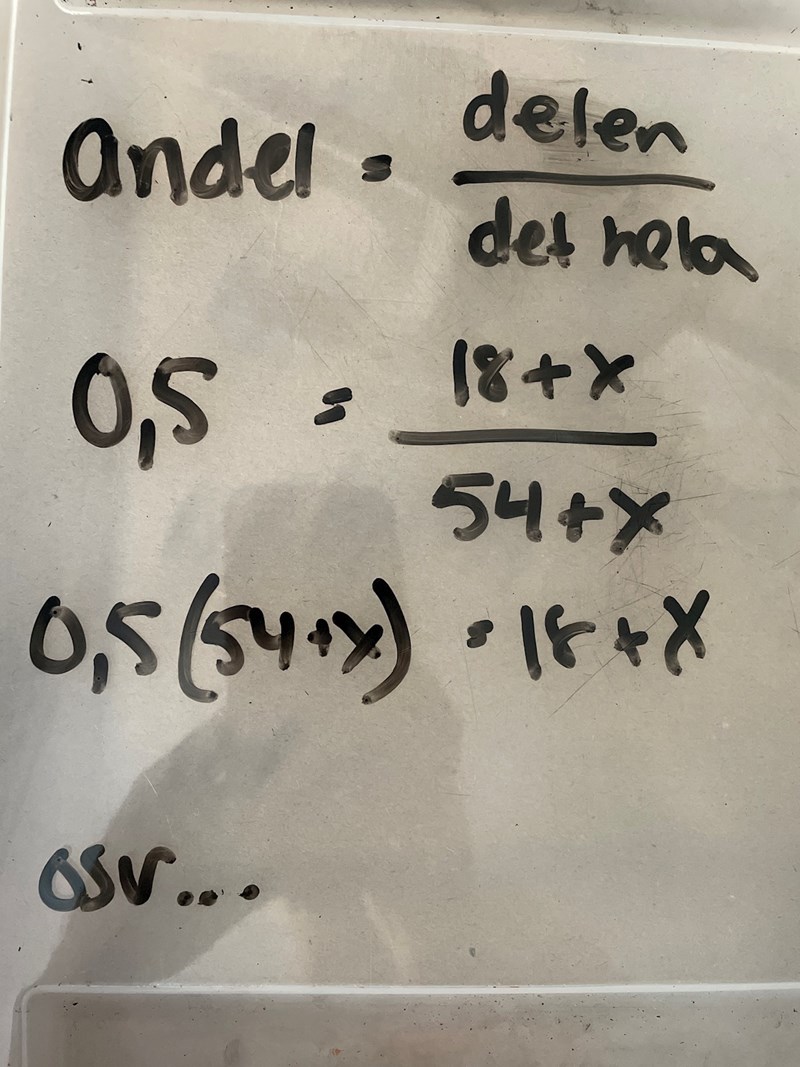 andel = delen / det hela
0,5 = 18+x / 54+x
0,5(54+x) = 18+x
osv...